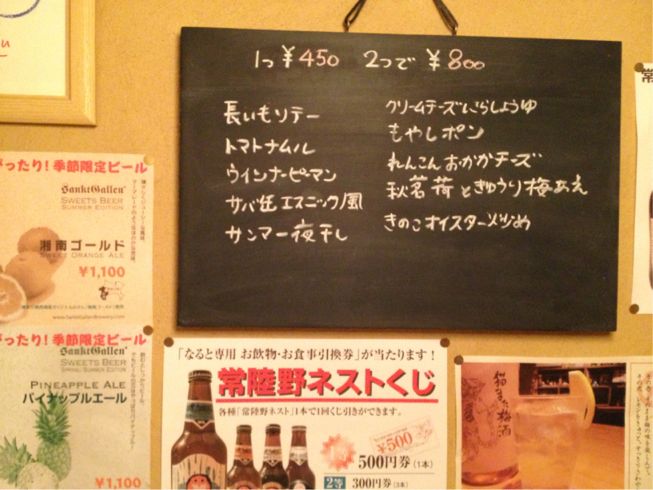 1つ ¥450 2つで ¥800
長いもソテー
トマトナムル
ウインナーピーマン
サバ缶エスニック風
サンマ一夜干し
クリームチーズにらしょうゆ
もやしポン
れんこんおかかチーズ
秋茗荷ときゅうり梅あえ
きのこオイスター炒め
がったり！季節限定ビール
SanktGallen
SWEETS BEER
SUMMER EDITION
湘南ゴールド
SWEET ORANGE ALE
¥1,100
がったり！季節限定ビール
SanktGallen
SWEETS BEER
SPRING/SUMMER EDITION
PINEAPPLE ALE
パイナップルエール
「なると専用 お飲物・お食事引換券」が当たります！
常陸野ネストくじ
各種「常陸野ネスト」1本で1回くじ引きができます。
¥500
500円券(1本)
2等 300円券(3本)
猫また梅酒